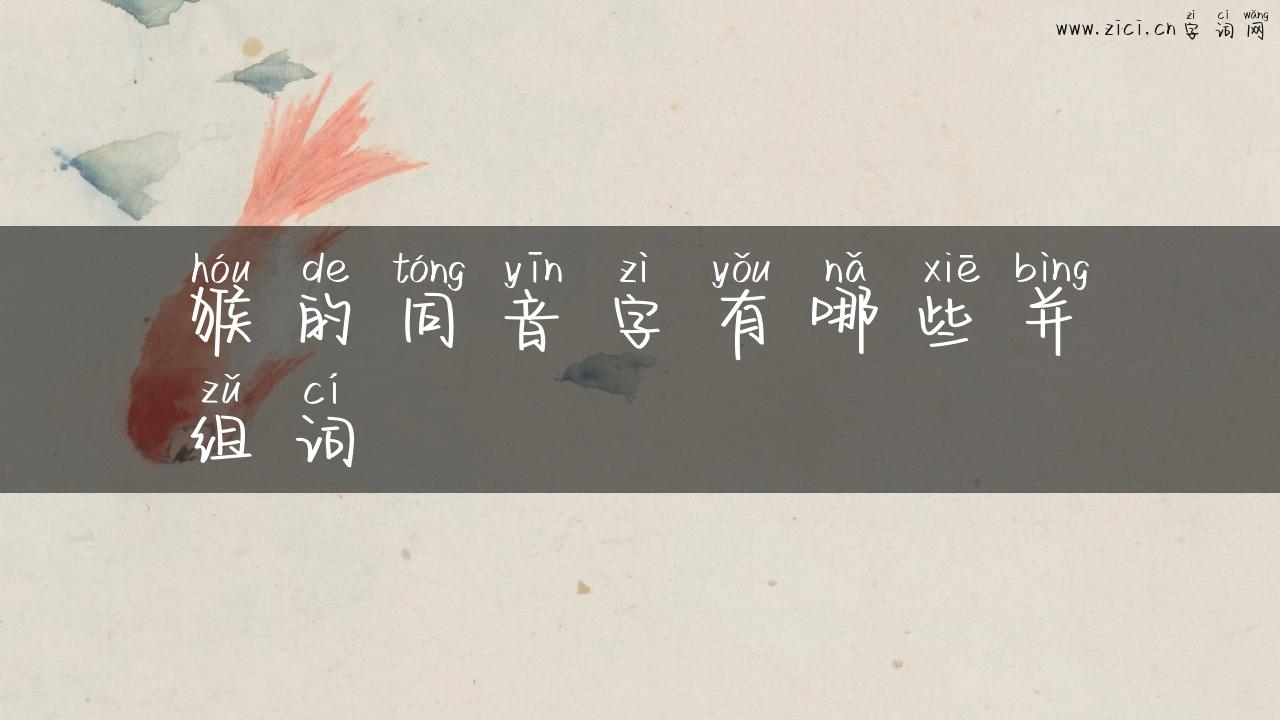 zì cí wǎng
www.zici.cn字词网
hóu de tóng yīn zì yǒu nǎ xiē bìng
猴的同音字有哪些并
zǔ cí
组词